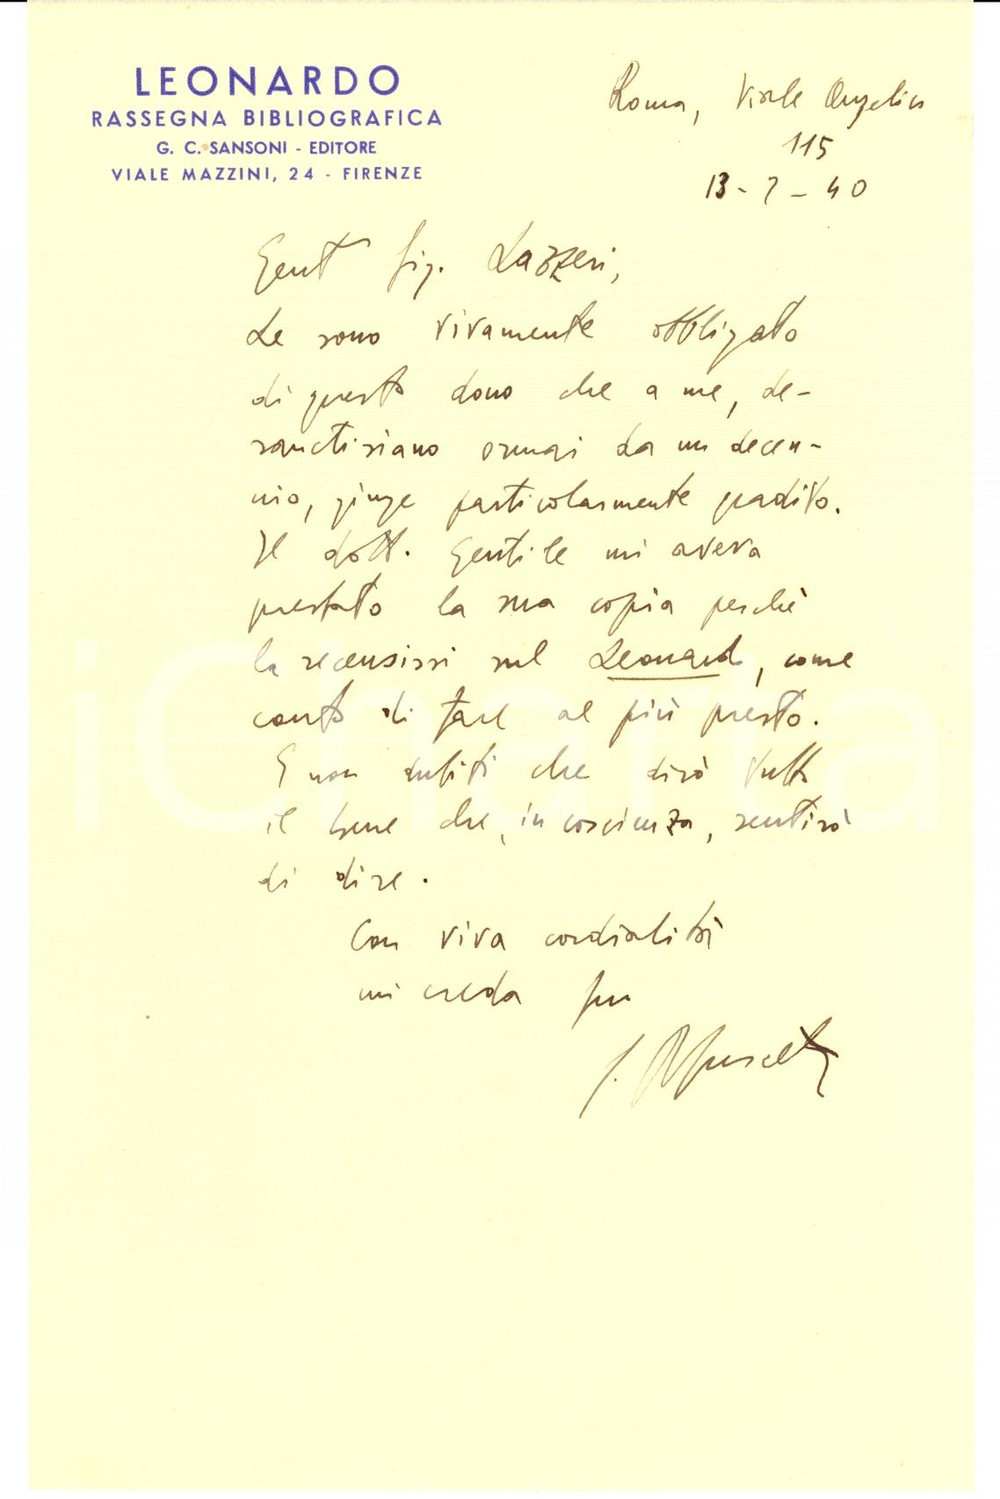 LEONARDO
RASSEGNA BIBLIOGRAFICA
G. C. SANSONI - EDITORE
VIALE MAZZINI, 24 - FIRENZE
Roma, Viale Angelico
115
13 - 2 - 40
Gent Sig. Lazzeri,
Le sono vivamente obbligato
di questo dono che a me, de-
sanctisiano ormai da un decen-
nio, giunge particolarmente gradito.
Il dott. Gentile mi aveva
prestato la sua copia perché
la recensissi sul Leonardo, come
conto di fare al più presto.
E non dubiti che dirò tutto
il bene che, in coscienza, sentirò
di dire.
Con viva cordialità
mi creda suo
C. Muscetta
iCharta